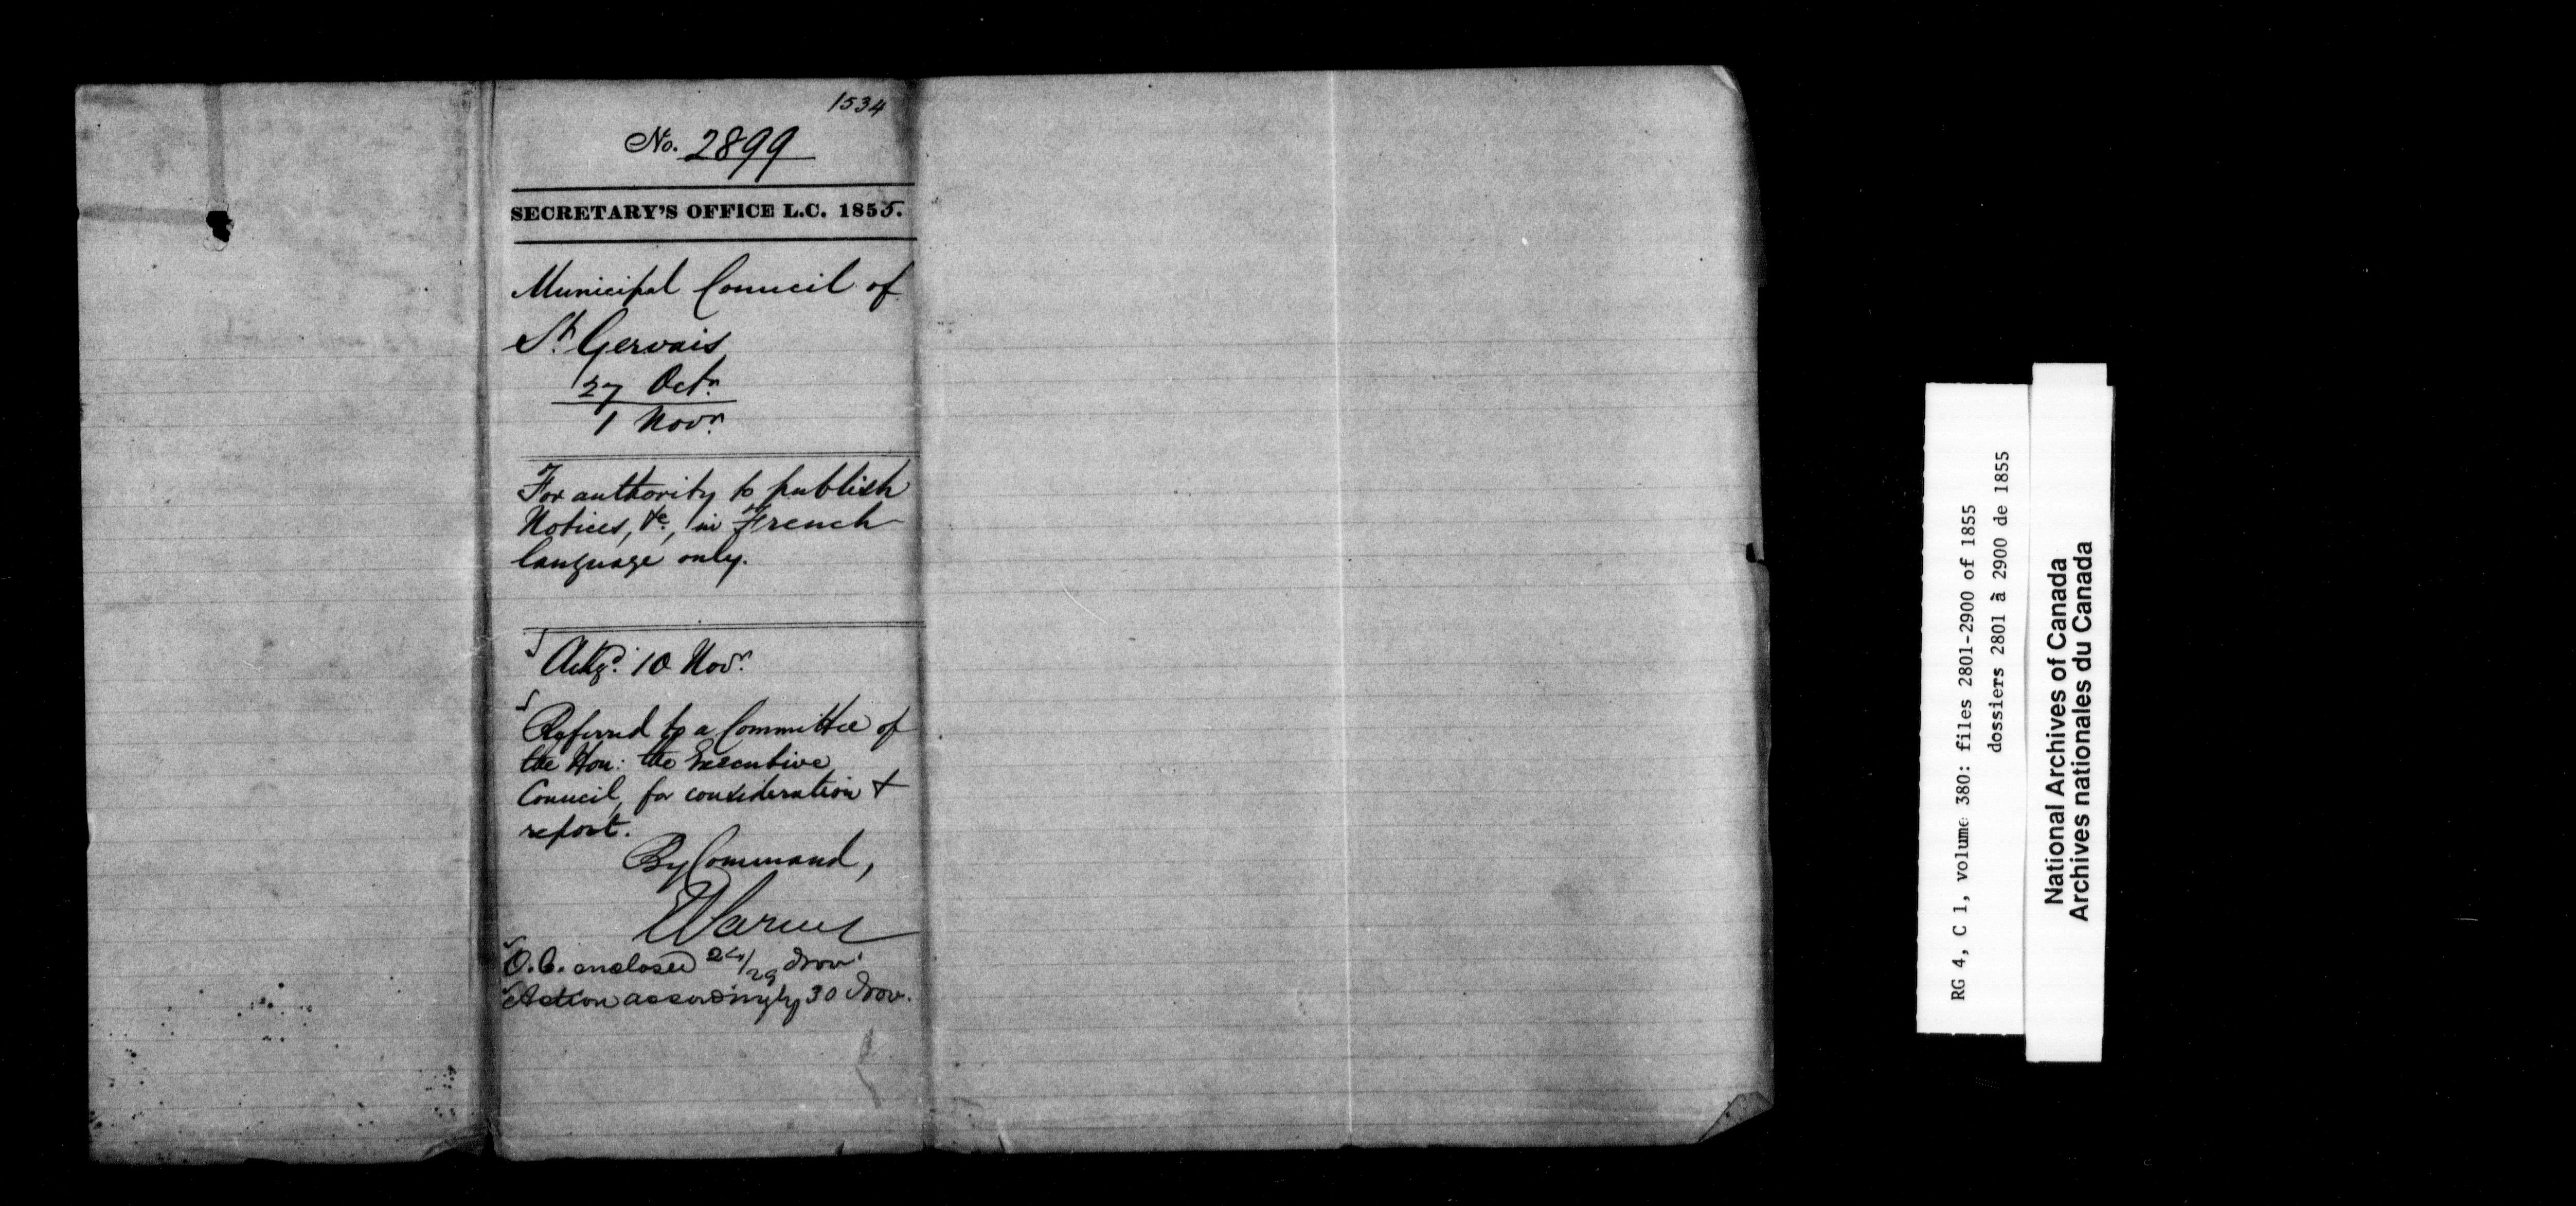 1534
No. 2899
SECRETARY'S OFFICE L.C. 1855.
Municipal Council of
St. Gervais
27 Octr.
1 Novr.
For authority to publish
Notices, &c, in French
language only.
Ackgd. 10 Novr.
Referred to a Committee of
the Hon: the Executive
Council, for consideration &
report.
By Command,
O.C. enclosed 24/29 Nov.
Action accordingly 30 Nov.
RG 4, C 1, volume 380: files 2801-2900 of 1855
dossiers 2801 à 2900 de 1855
National Archives of Canada
Archives nationales du Canada